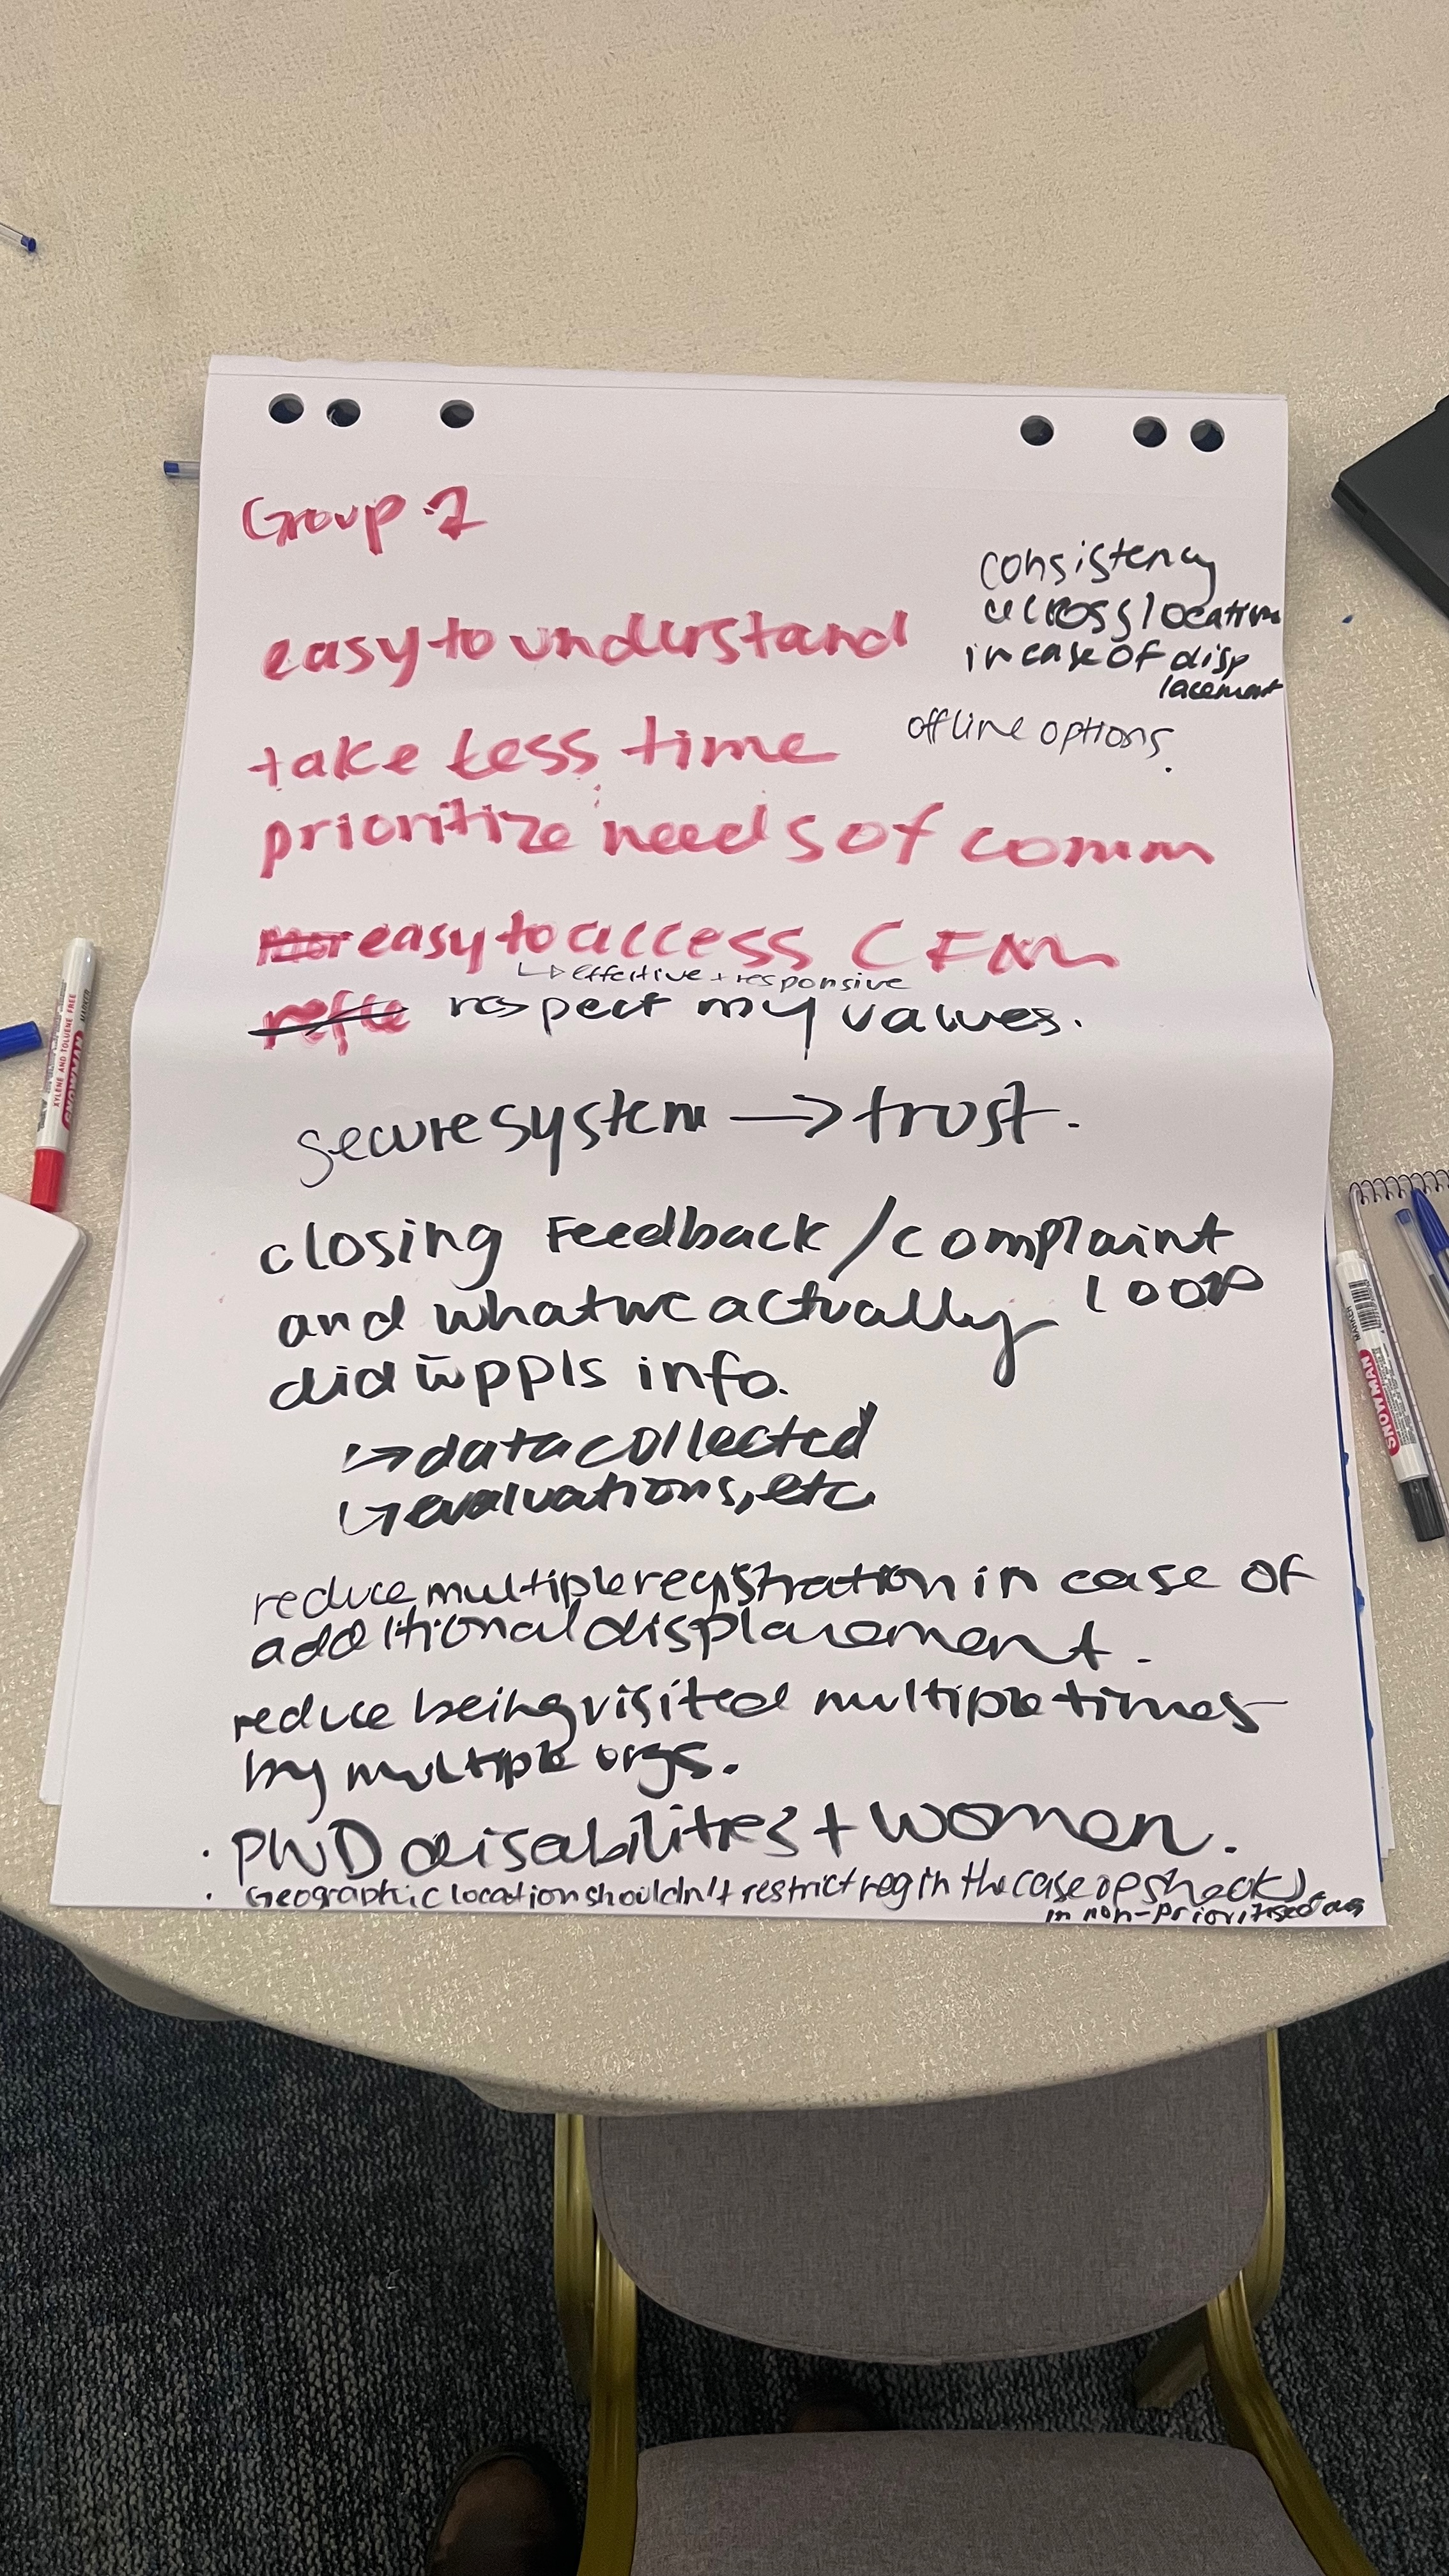 Group 2
consistency
across location
in case of disp
lacement
easy to understand
offline options.
take less time
prioritize needs of comm
easy to access CFM
↳ effective + responsive
respect my values.
secure system → trust.
closing Feedback / complaint
loop
and what we actually
did w̄ ppls info.
↳ data collected
↳ evaluations, etc.
reduce multiple registration in case of
additional displacement.
reduce being visited multiple times
by multiple orgs.
· PWD disabilities + women.
· Geographic location shouldn't restrict reg in the case of shock
in non-prioritised
XYLENE AND TOLUENE FREE
MARKER
SNOWMAN
MARKER
SNOWMAN